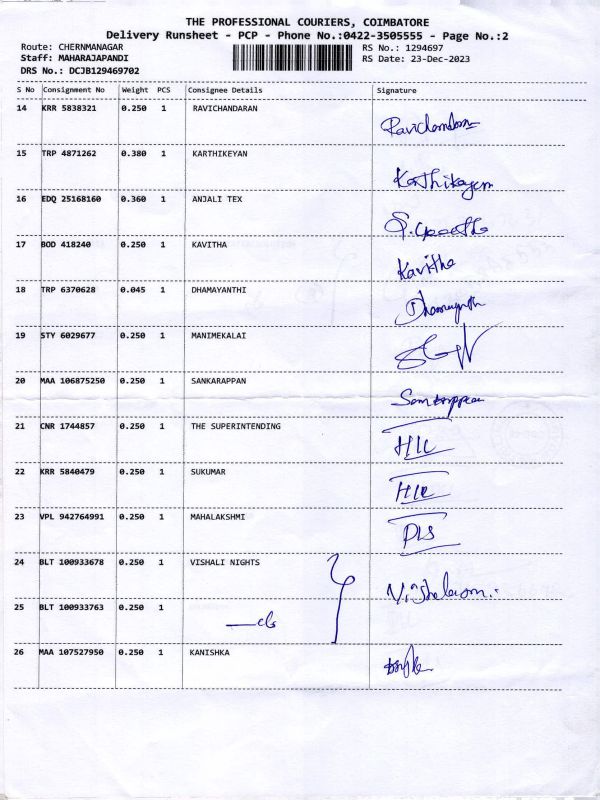 THE PROFESSIONAL COURIERS, COIMBATORE
Delivery Runsheet - PCP - Phone No.:0422-3505555 - Page No.:2
Route: CHERNMANAGAR RS No.: 1294697
Staff: MAHARAJAPANDI RS Date: 23-Dec-2023
DRS No.: DCJB129469702
S No Consignment No Weight PCS Consignee Details Signature
14 KRR 5838321 0.250 1 RAVICHANDARAN Ravichandaran
15 TRP 4871262 0.380 1 KARTHIKEYAN Karthikayen
16 EDQ 25168160 0.360 1 ANJALI TEX
17 BOD 418240 0.250 1 KAVITHA Kavitha
18 TRP 6370628 0.045 1 DHAMAYANTHI
19 STY 6029677 0.250 1 MANIMEKALAI
20 MAA 106875250 0.250 1 SANKARAPPAN
21 CNR 1744857 0.250 1 THE SUPERINTENDING
22 KRR 5840479 0.250 1 SUKUMAR
23 VPL 942764991 0.250 1 MAHALAKSHMI
24 BLT 100933678 0.250 1 VISHALI NIGHTS
25 BLT 100933763 0.250 1
26 MAA 107527950 0.250 1 KANISHKA